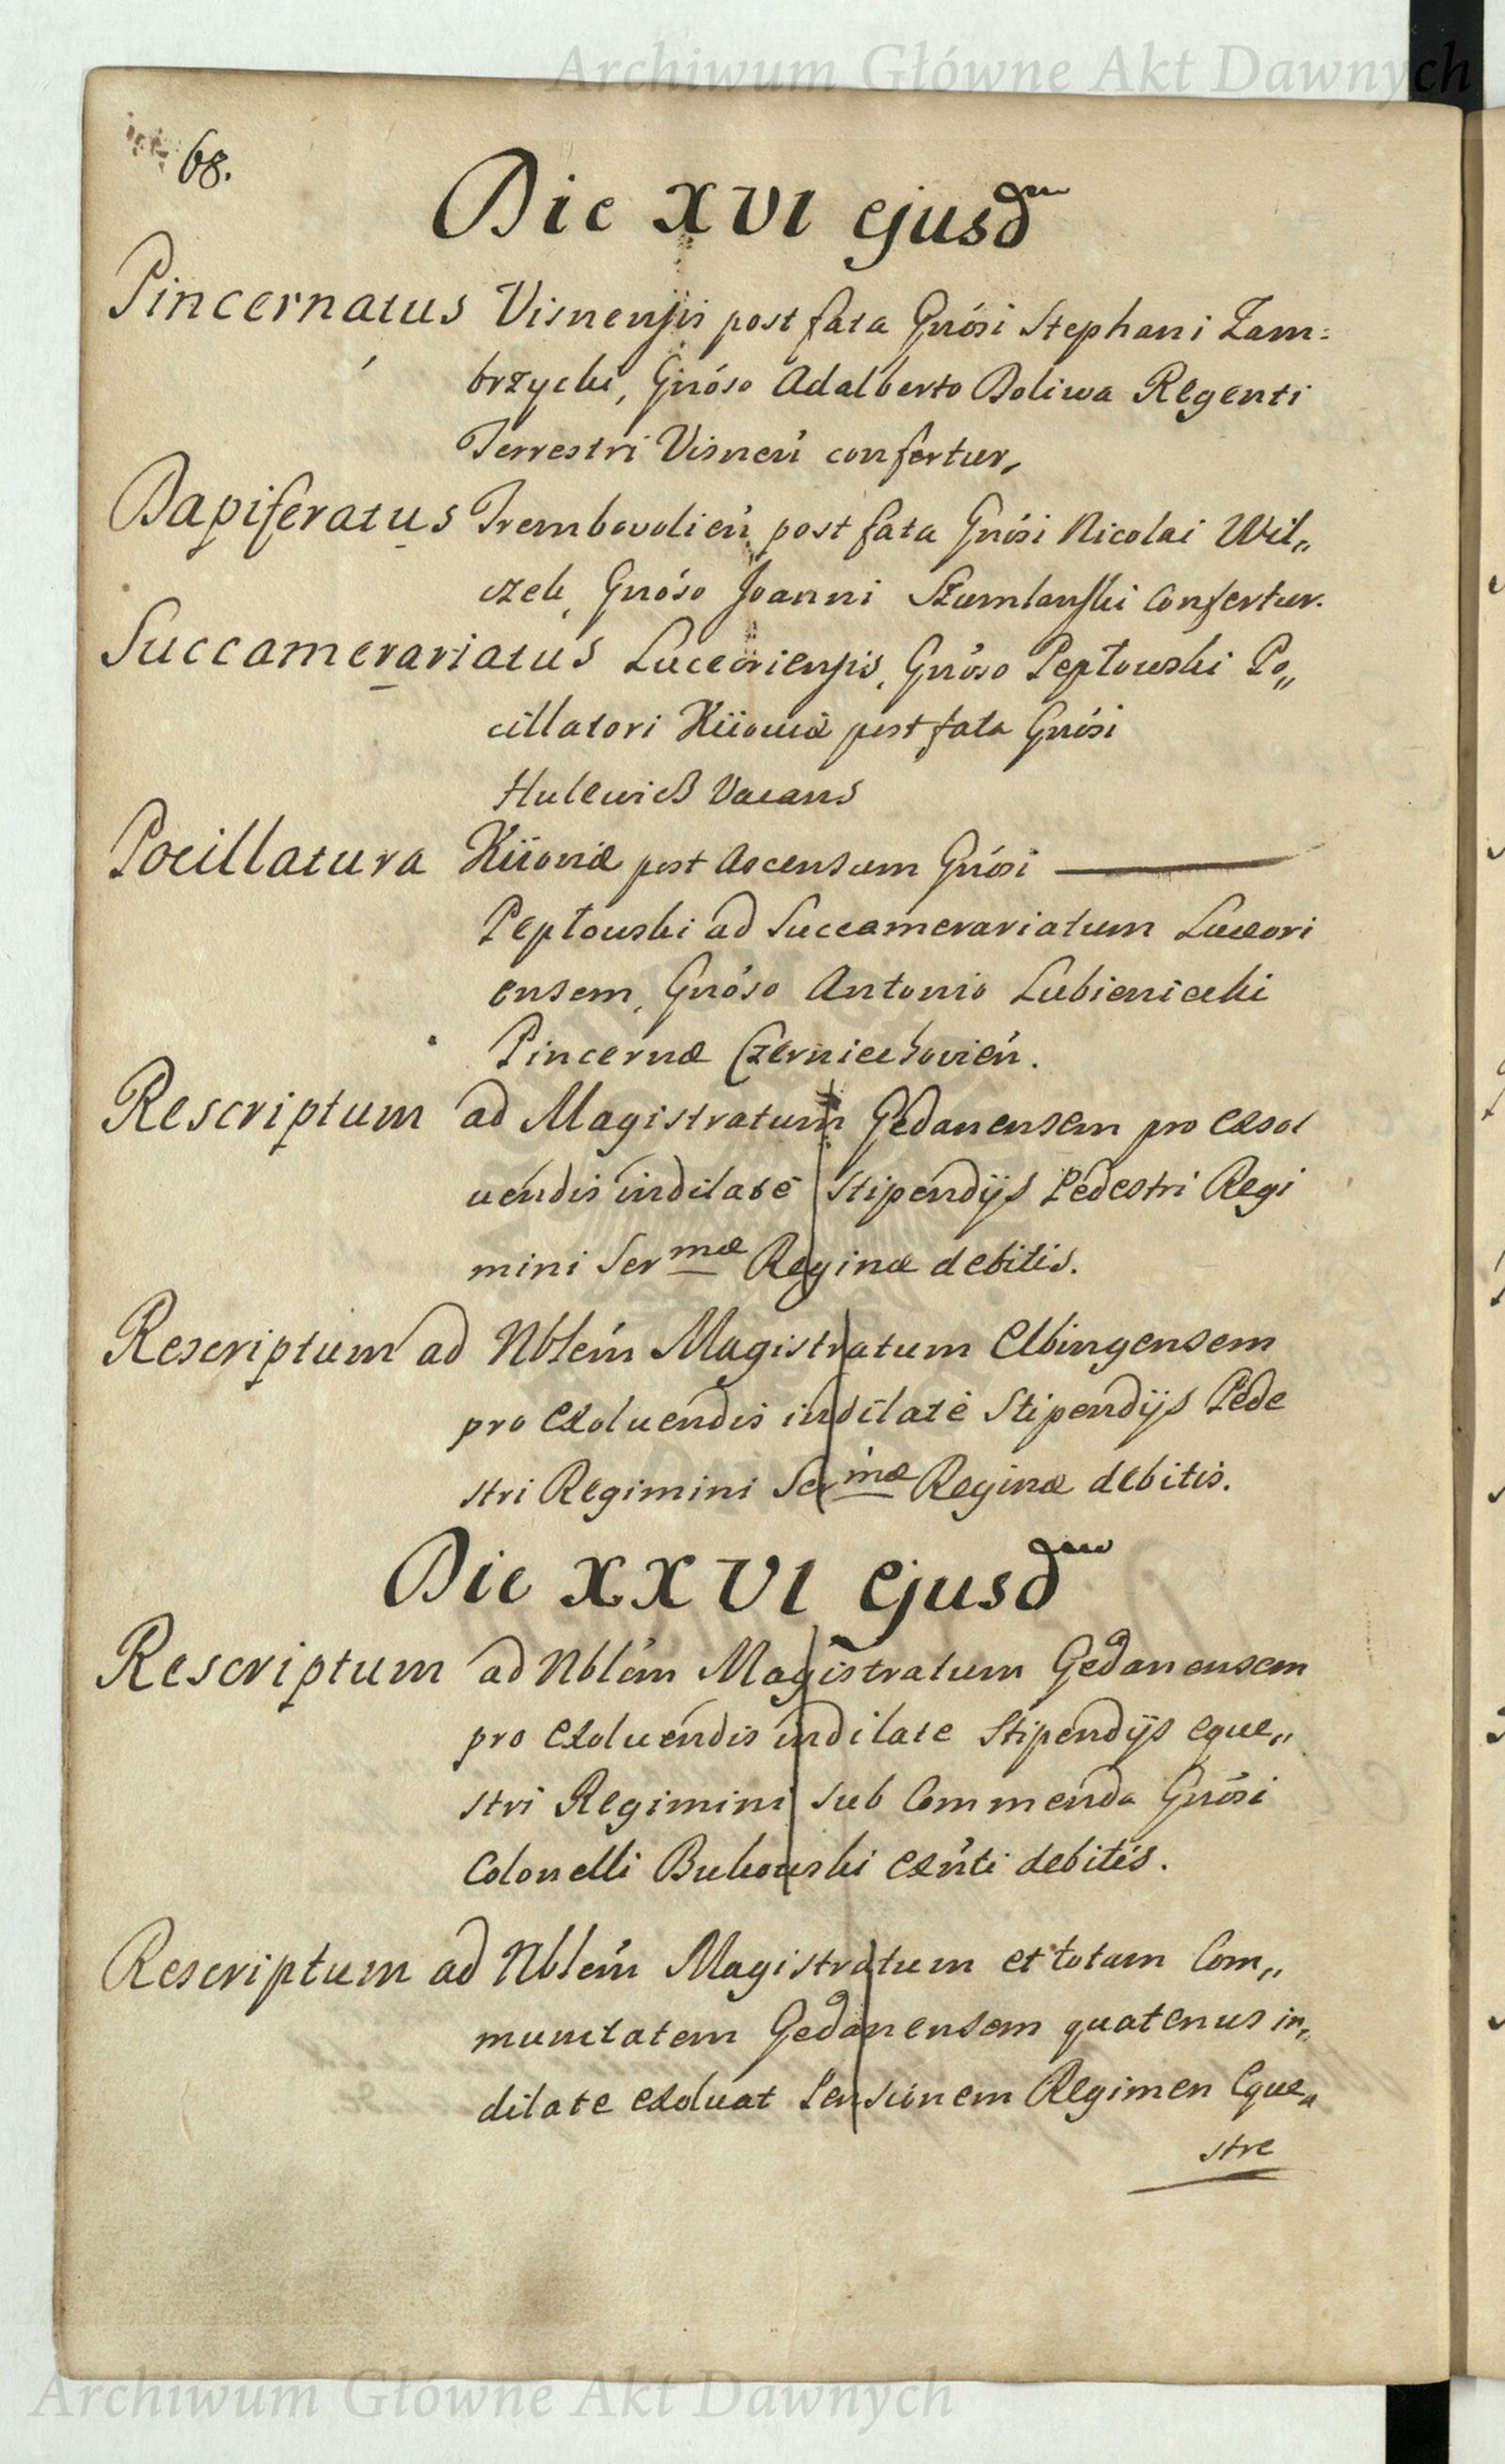 Archiwum Główne Akt Dawnych
68.
Die XVI ejusdm
Pincernatus Visnensis post fata Gnósi Stephani Zam=
brzycki, Gnóso Adalberto Boliwa Regenti
Terrestri Visneń confertur,
Dapiferatus Trembovolień post fata Gnósi Nicolai Wil„
czek, Gnóso Joanni Szumlanski Confertur.
Succamerariatus Luceoriensis, Gnóso Peptowski Po„
cillatori Kiioviæ post fata Gnósi
Hulewicz Vacans
Pocillatura Kiioviæ post Ascensum Gnósi
Peptowski ad Succamerariatum Luceori
ensem, Gnóso Antonio Lubieniecki
Pincernæ Czerniechovień.
Rescriptum ad Magistratum Gedanensem pro exsol
uendis indilatè Stipendijs Pedestri Regi
mini Sermæ Reginæ debitis.
Rescriptum ad Nblem Magistratum Elbingensem
pro exoluendis indilatè Stipendijs Pede
stri Regimini Sermæ Reginæ debitis.
Die XXVI ejusdm
Rescriptum ad Nblem Magistratum Gedanensem
pro exoluendis indilate Stipendijs eque„
stri Regimini sub Commenda Gnósi
Colonelli Bukowski exńti debitis.
Rescriptum ad Nblem Magistratum et totam Com„
munitatem Gedanensem quatenus in„
dilate exoluat Pensionem Regimen Eque„
stre
Archiwum Główne Akt Dawnych